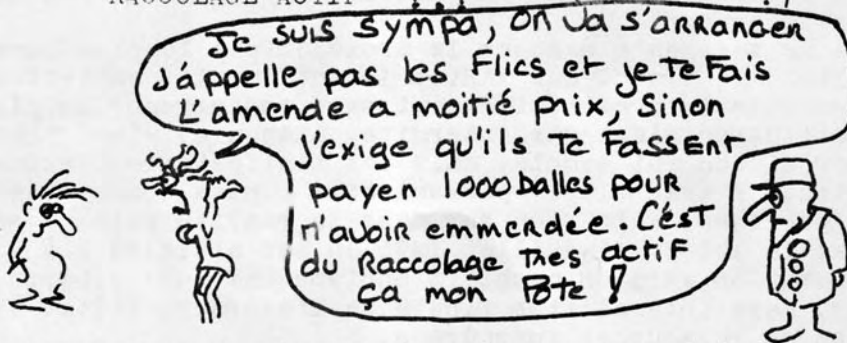 RACCOLAGE ACTIF
Je suis sympa, on va s'arranger
J'appelle pas les Flics et je te Fais
L'amende a moitié prix, sinon
j'exige qu'ils te Fassent
payer 1000 balles pour
m'avoir emmerdée. C'est
du Raccolage tres actif
ça mon Pote !